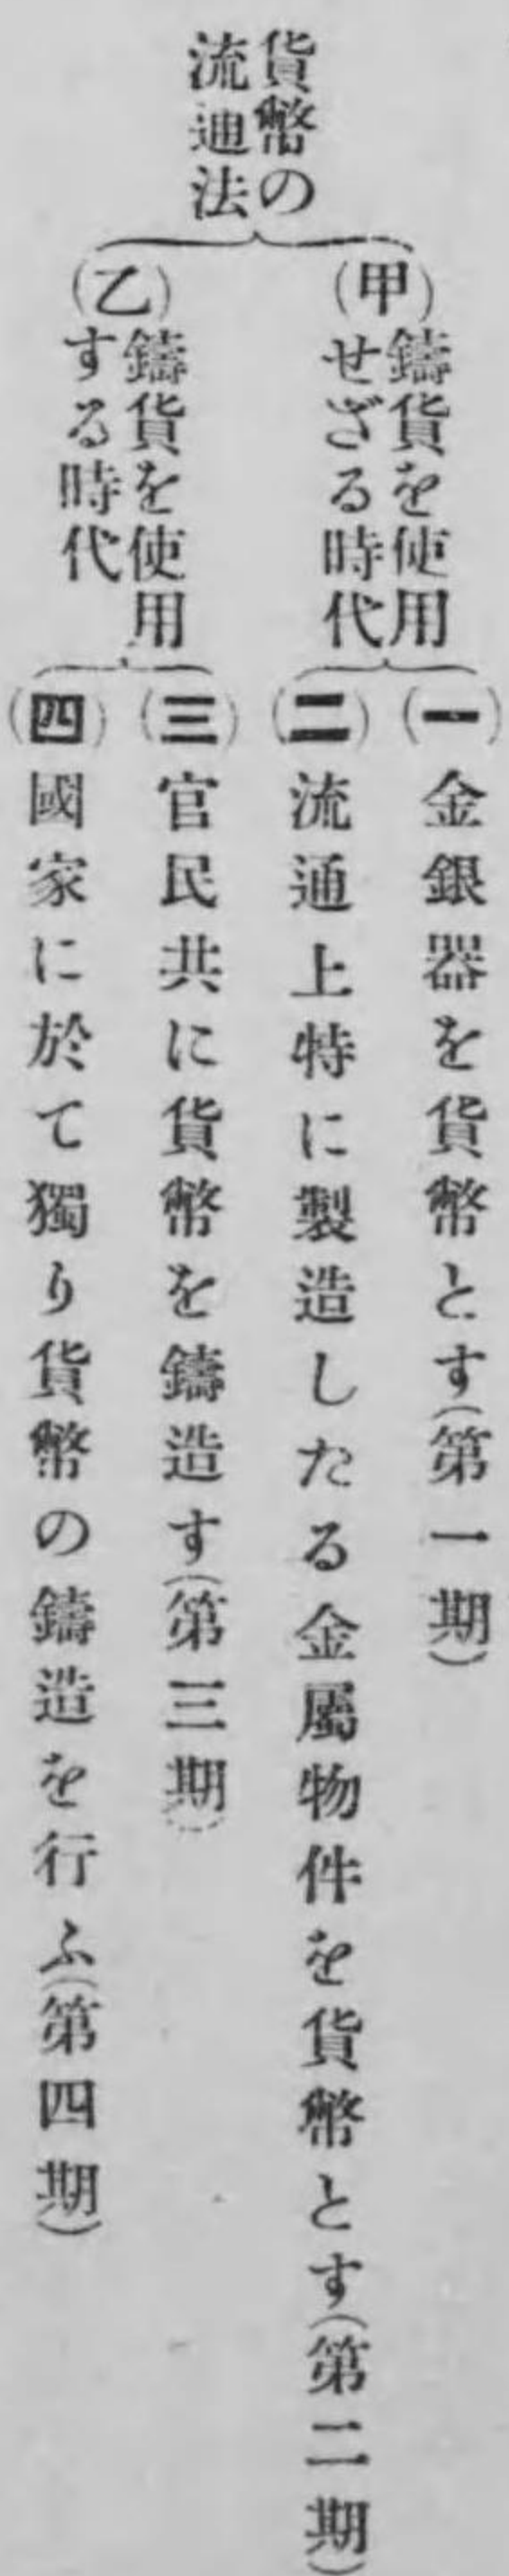 貨幣の
流通法
(甲)
鑄貨を使用
せざる時代
(一)金銀器を貨幣とす(第一期)
(二)流通上特に製造したる金屬物件を貨幣とす(第二期)
(乙)
鑄貨を使用
する時代
(三)官民共に貨幣を鑄造す(第三期)
(四)國家に於て獨り貨幣の鑄造を行ふ(第四期)